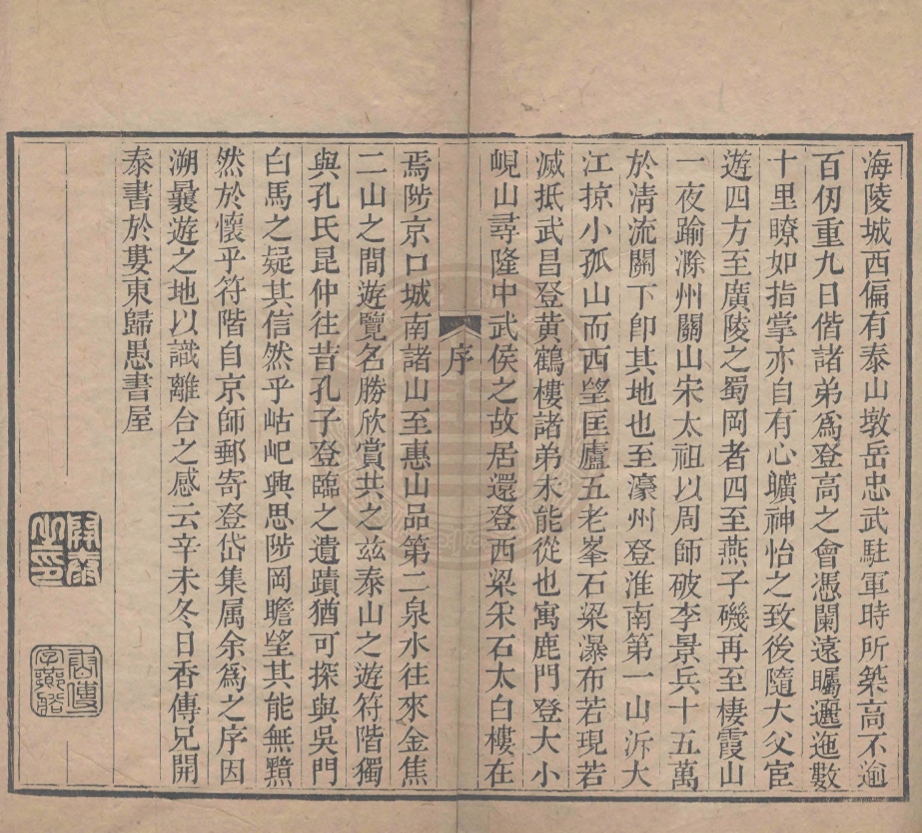 海陵城西偏有泰山墩岳忠武駐軍時所築高不逾
百仞重九日偕諸弟爲登高之會憑闌遠矚邐迤數
十里瞭如指掌亦自有心曠神怡之致後隨大父宦
遊四方至廣陵之蜀岡者四至燕子磯再至棲霞山
一夜踰滁州關山宋太祖以周師破李景兵十五萬
於淸流關下卽其地也至濠州登淮南第一山泝大
江掠小孤山而西望匡廬五老峯石梁瀑布若現若
滅抵武昌登黃鶴樓諸弟未能從也寓鹿門登大小
峴山尋隆中武侯之故居還登西梁采石太白樓在
序
焉陟京口城南諸山至惠山品第二泉水往來金焦
二山之間遊覽名勝欣賞共之茲泰山之遊符階獨
與孔氏昆仲往昔孔子登臨之遺蹟猶可探與吳門
白馬之疑其信然乎岵屺興思陟岡瞻望其能無黯
然於懷乎符階自京師郵寄登岱集属余爲之序因
溯曩遊之地以識離合之感云辛未冬日香傳兄開
泰書於婁東歸愚書屋